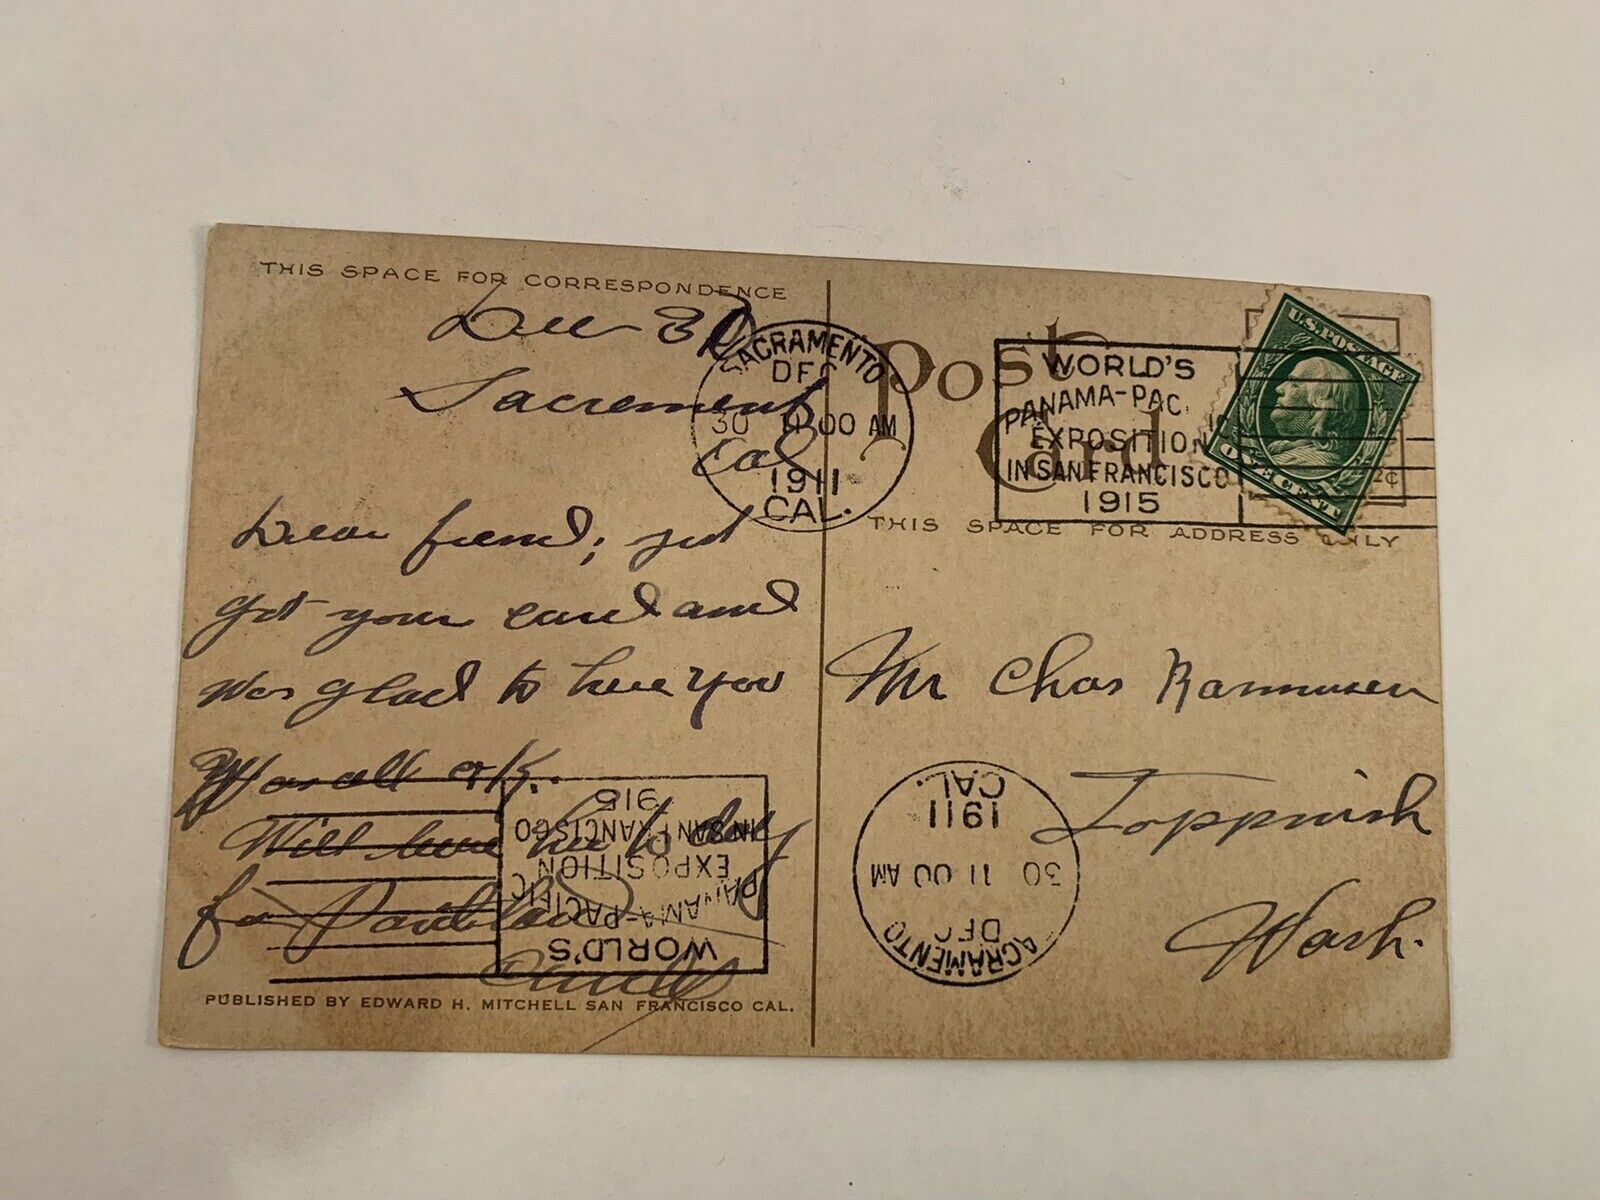 THIS SPACE FOR CORRESPONDENCE
Dec 30
Sacrement
Cal
Dear friend; just
got your card and
was glad to here you
Was all o/k.
Will leave here to day
for Portland
PUBLISHED BY EDWARD H. MITCHELL SAN FRANCISCO CAL.
SACRAMENTO
DEC
30 11 00 AM
1911
CAL.
Post
Card
WORLD'S
PANAMA-PAC.
EXPOSITION
IN SAN FRANCISCO
1915
U.S. POSTAGE
ONE CENT
2¢
THIS SPACE FOR ADDRESS ONLY
Mr Chas Rasmusen
Toppnish
Wash.
ACRAMENTO
DEC
30 11 00 AM
1911
CAL.
WORLD'S
PANAMA-PACIFIC
EXPOSITION
IN SAN FRANCISCO
915